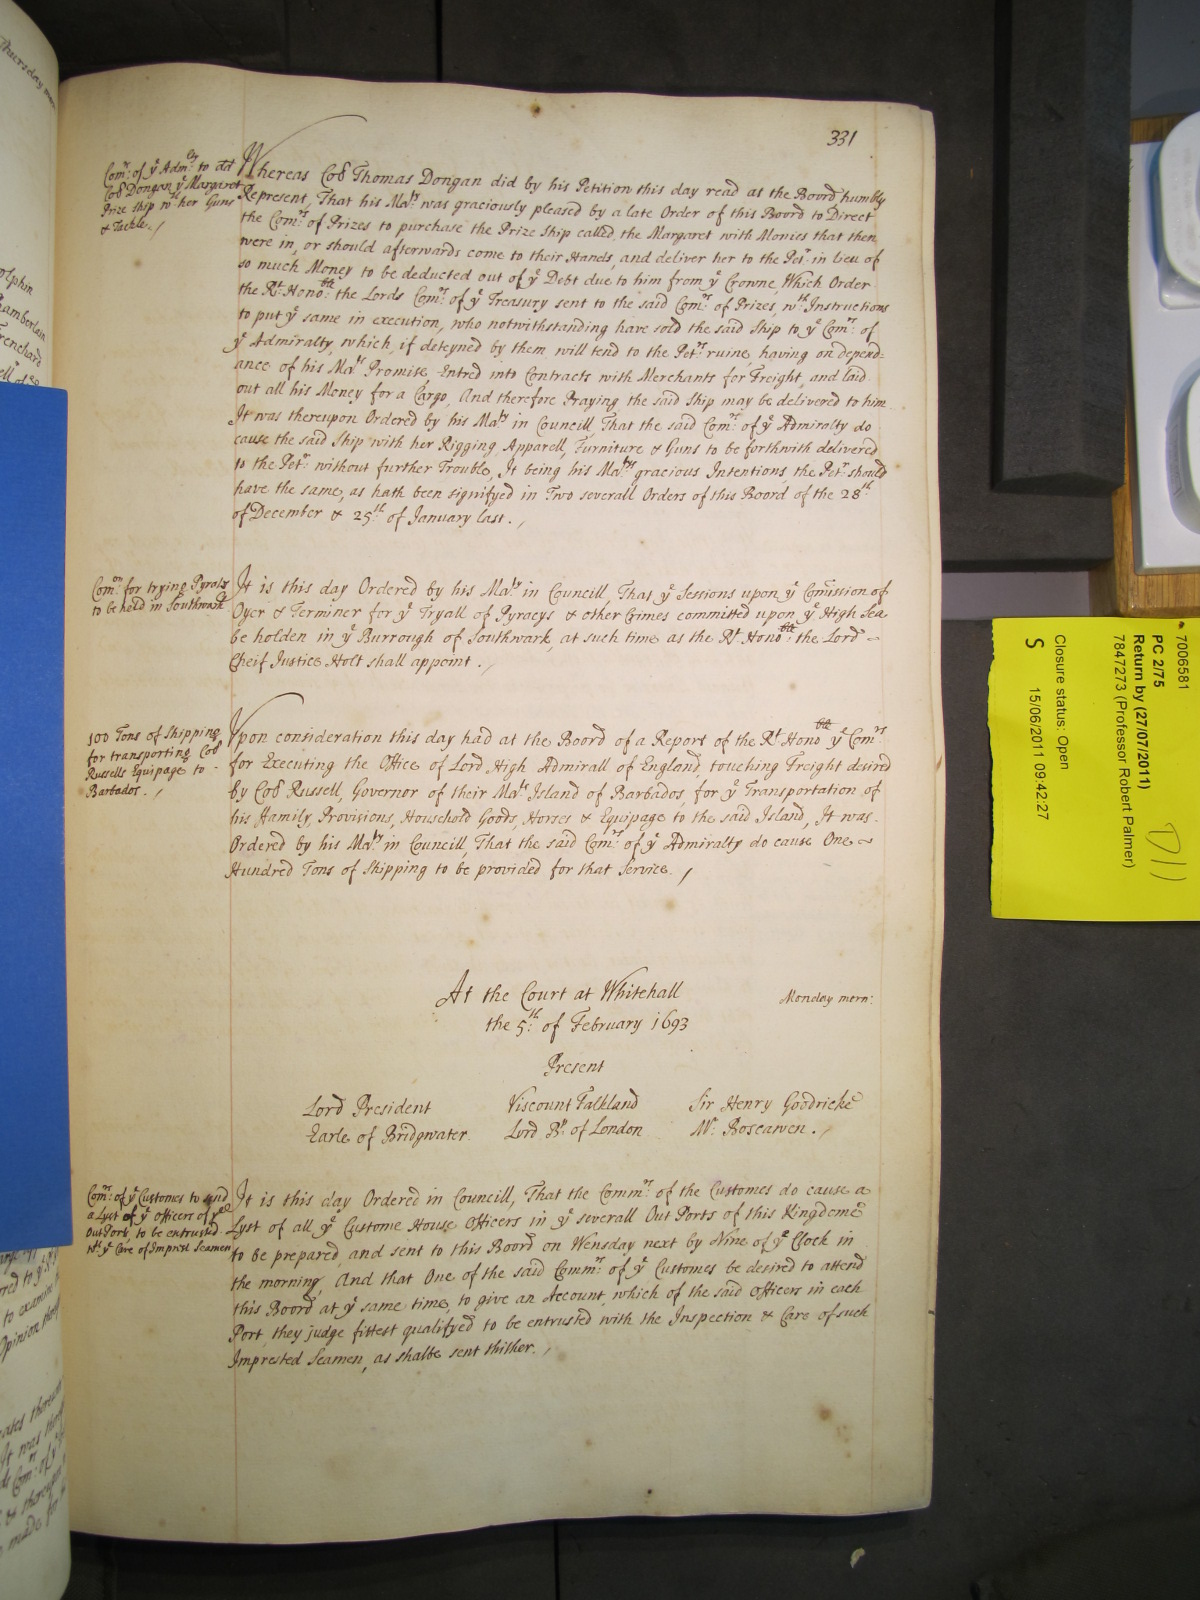 331
Com.rs of ye Adm.lty to dd
Coll Dongan ye Margaret
Prize Ship wth her Guns
& Tackle./
Whereas Coll Thomas Dongan did by his Petition this day read at the Board humbly
Represent, That his Ma.ty was graciously pleased by a late Order of this Board to Direct
the Com.rs of Prizes to purchase the Prize Ship called, the Margaret with Monies that then
were in, or should afterwards come to their Hands, and deliver her to the Pet.r in lieu of
so much Money to be deducted out of ye Debt due to him from ye Crowne, Which Order
the R.t Hono.ble the Lords Com.rs of ye Treasury sent to the said Com.rs of Prizes, wth Instructions
to put ye same in execution, who notwithstanding have sold the said Ship to ye Com.rs of
ye Admiralty, which, if deteyned by them, will tend to the Pet.rs ruine, having on depend=
ance of his Ma.ts Promise Entred into Contracts with Merchants for Freight, and laid
out all his Money for a Cargo, And therefore Praying the said Ship may be delivered to him
It was thereupon Ordered by his Ma.ty in Councill, That the said Com.rs of ye Admiralty do
cause the said Ship with her Rigging Apparell, Furniture & Guns to be forthwith delivered
to the Pet.r without further Trouble, It being his Ma.tys gracious Intentions, the Pet.r should
have the same, as hath been signifyed in Two severall Orders of this Board of the 28.th
of December & 25.th of January last./
Com.on for trying Pyrats
to be held in Southwark
It is this day Ordered by his Ma.ty in Councill, That ye Sessions upon ye Comission of
Oyer & Terminer for ye Tryall of Pyracys & other Crimes committed upon ye High Sea
be holden in ye Burrough of Southwark, at such time as the R.t Hono.ble the Lord ~
Cheif Justice Holt shall appoint./
100 Tons of Shipping
for transporting Coll
Russells Equipage to -
Barbados./
Vpon consideration this day had at the Board of a Report of the R.t Hono.ble ye Com.rs
for Executing the Office of Lord High Admirall of England, touching Freight desired
by Coll Russell, Governor of their Ma.ts Island of Barbados, for ye Transportation of
his Family, Provisions, Household Goods, Horses & Equipage to the said Island, It was -
Ordered by his Ma.ty in Councill, That the said Com.rs of ye Admiralty do cause One ~
Hundred Tons of Shipping to be provided for that Service./
At the Court at Whitehall
Monday morn:
the 5.th of February 1693
Present
Lord President Viscount Falkland Sir Henry Goodricke
Earle of Bridgwater Lord B.p of London M.r Boscawen./
Com.rs of ye Customes to send
a Lyst of ye Officers of ye
Out Ports, to be entrusted
wth ye Care of Imprest Seamen
It is this day Ordered in Councill, That the Comm.rs of the Customes do cause a
Lyst of all ye Custome House Officers in ye severall Out Ports of this Kingdome
to be prepared, and sent to this Board on Wensday next by Nine of ye Clock in
the morning, And that One of the said Comm.rs of ye Customes be desired to attend
this Board at ye same time, to give an Account, which of the said Officers in each
Port, they judge fittest qualifyed to be entrusted with the Inspection & Care of such
Imprested Seamen, as shalbe sent thither./
7006581
PC 2/75
Return by (27/07/2011)
7847273 (Professor Robert Palmer)
Closure status: Open
S 15/06/2011 09:42:27
D11
Thursday
olphin
hamberlain
renchard
to examine
Opinion
It was
made for